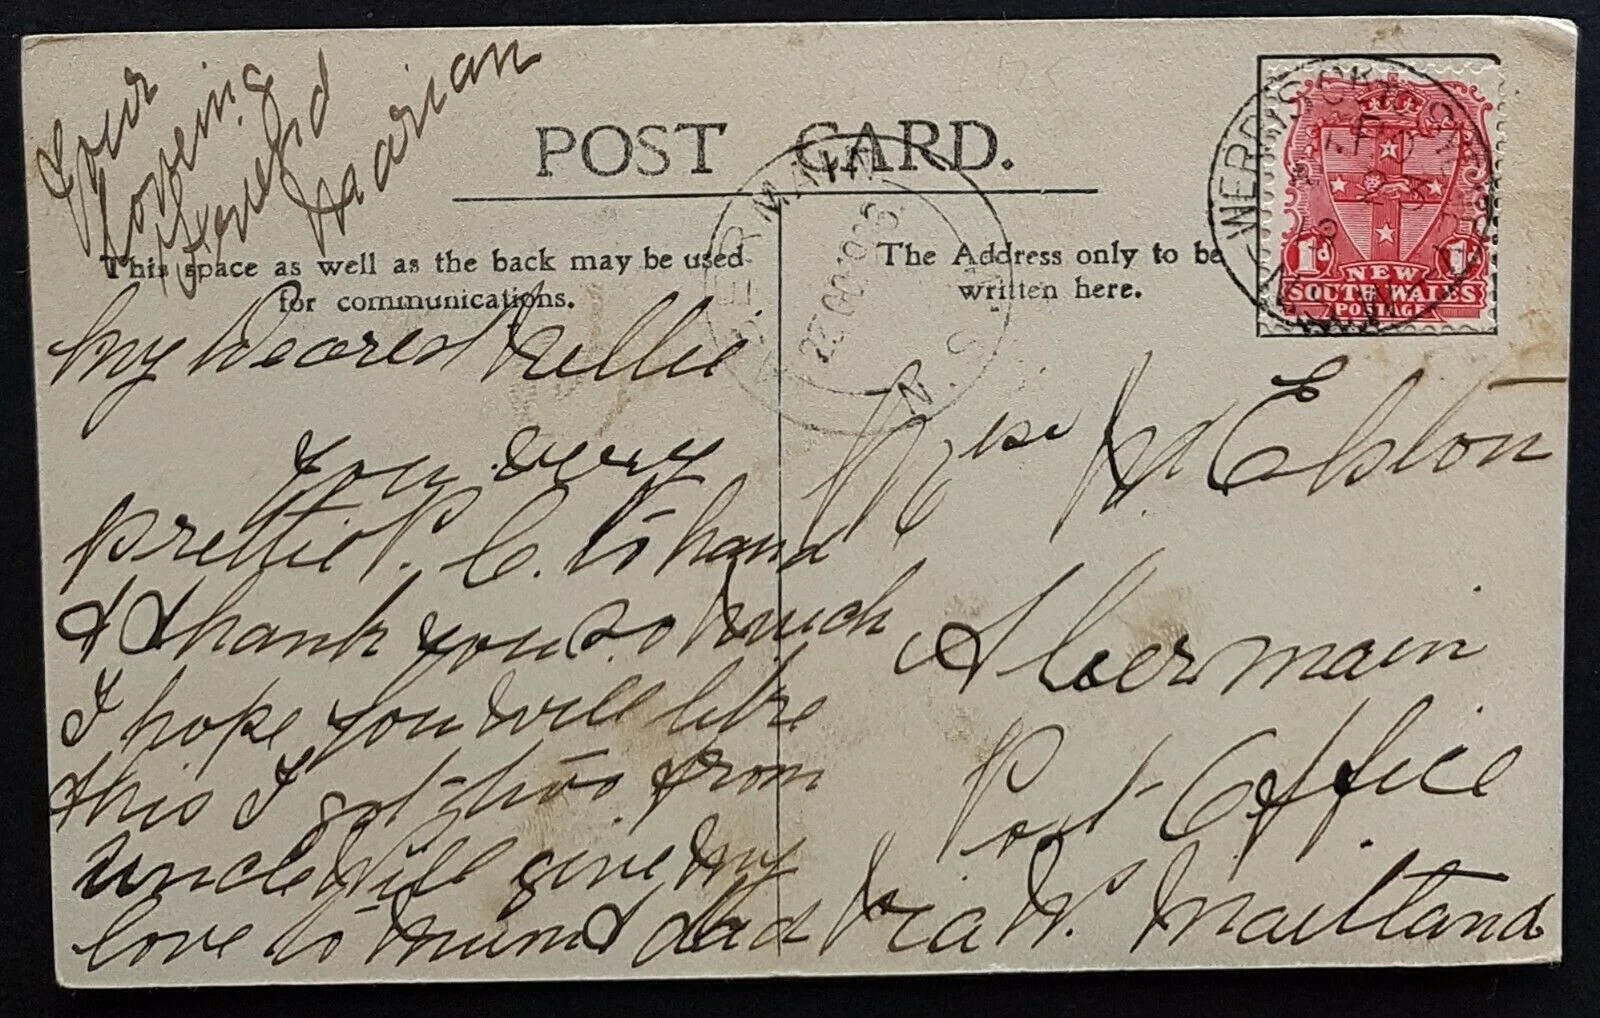 POST CARD.
This space as well as the back may be used
for communications.
The Address only to be
written here.
1d 1d
NEW
SOUTH WALES
POSTAGE
ABERMAIN
N.S.W
Your
loveing
friend
Marian
My Dearest Nellie
Your very
prettie P. C. to hand
& thank you so much
I hope you will like
this I got two from
uncle Will give my
love to mum & dad
Miss N Ebston
Abermain
Post Office
via W. Maitland